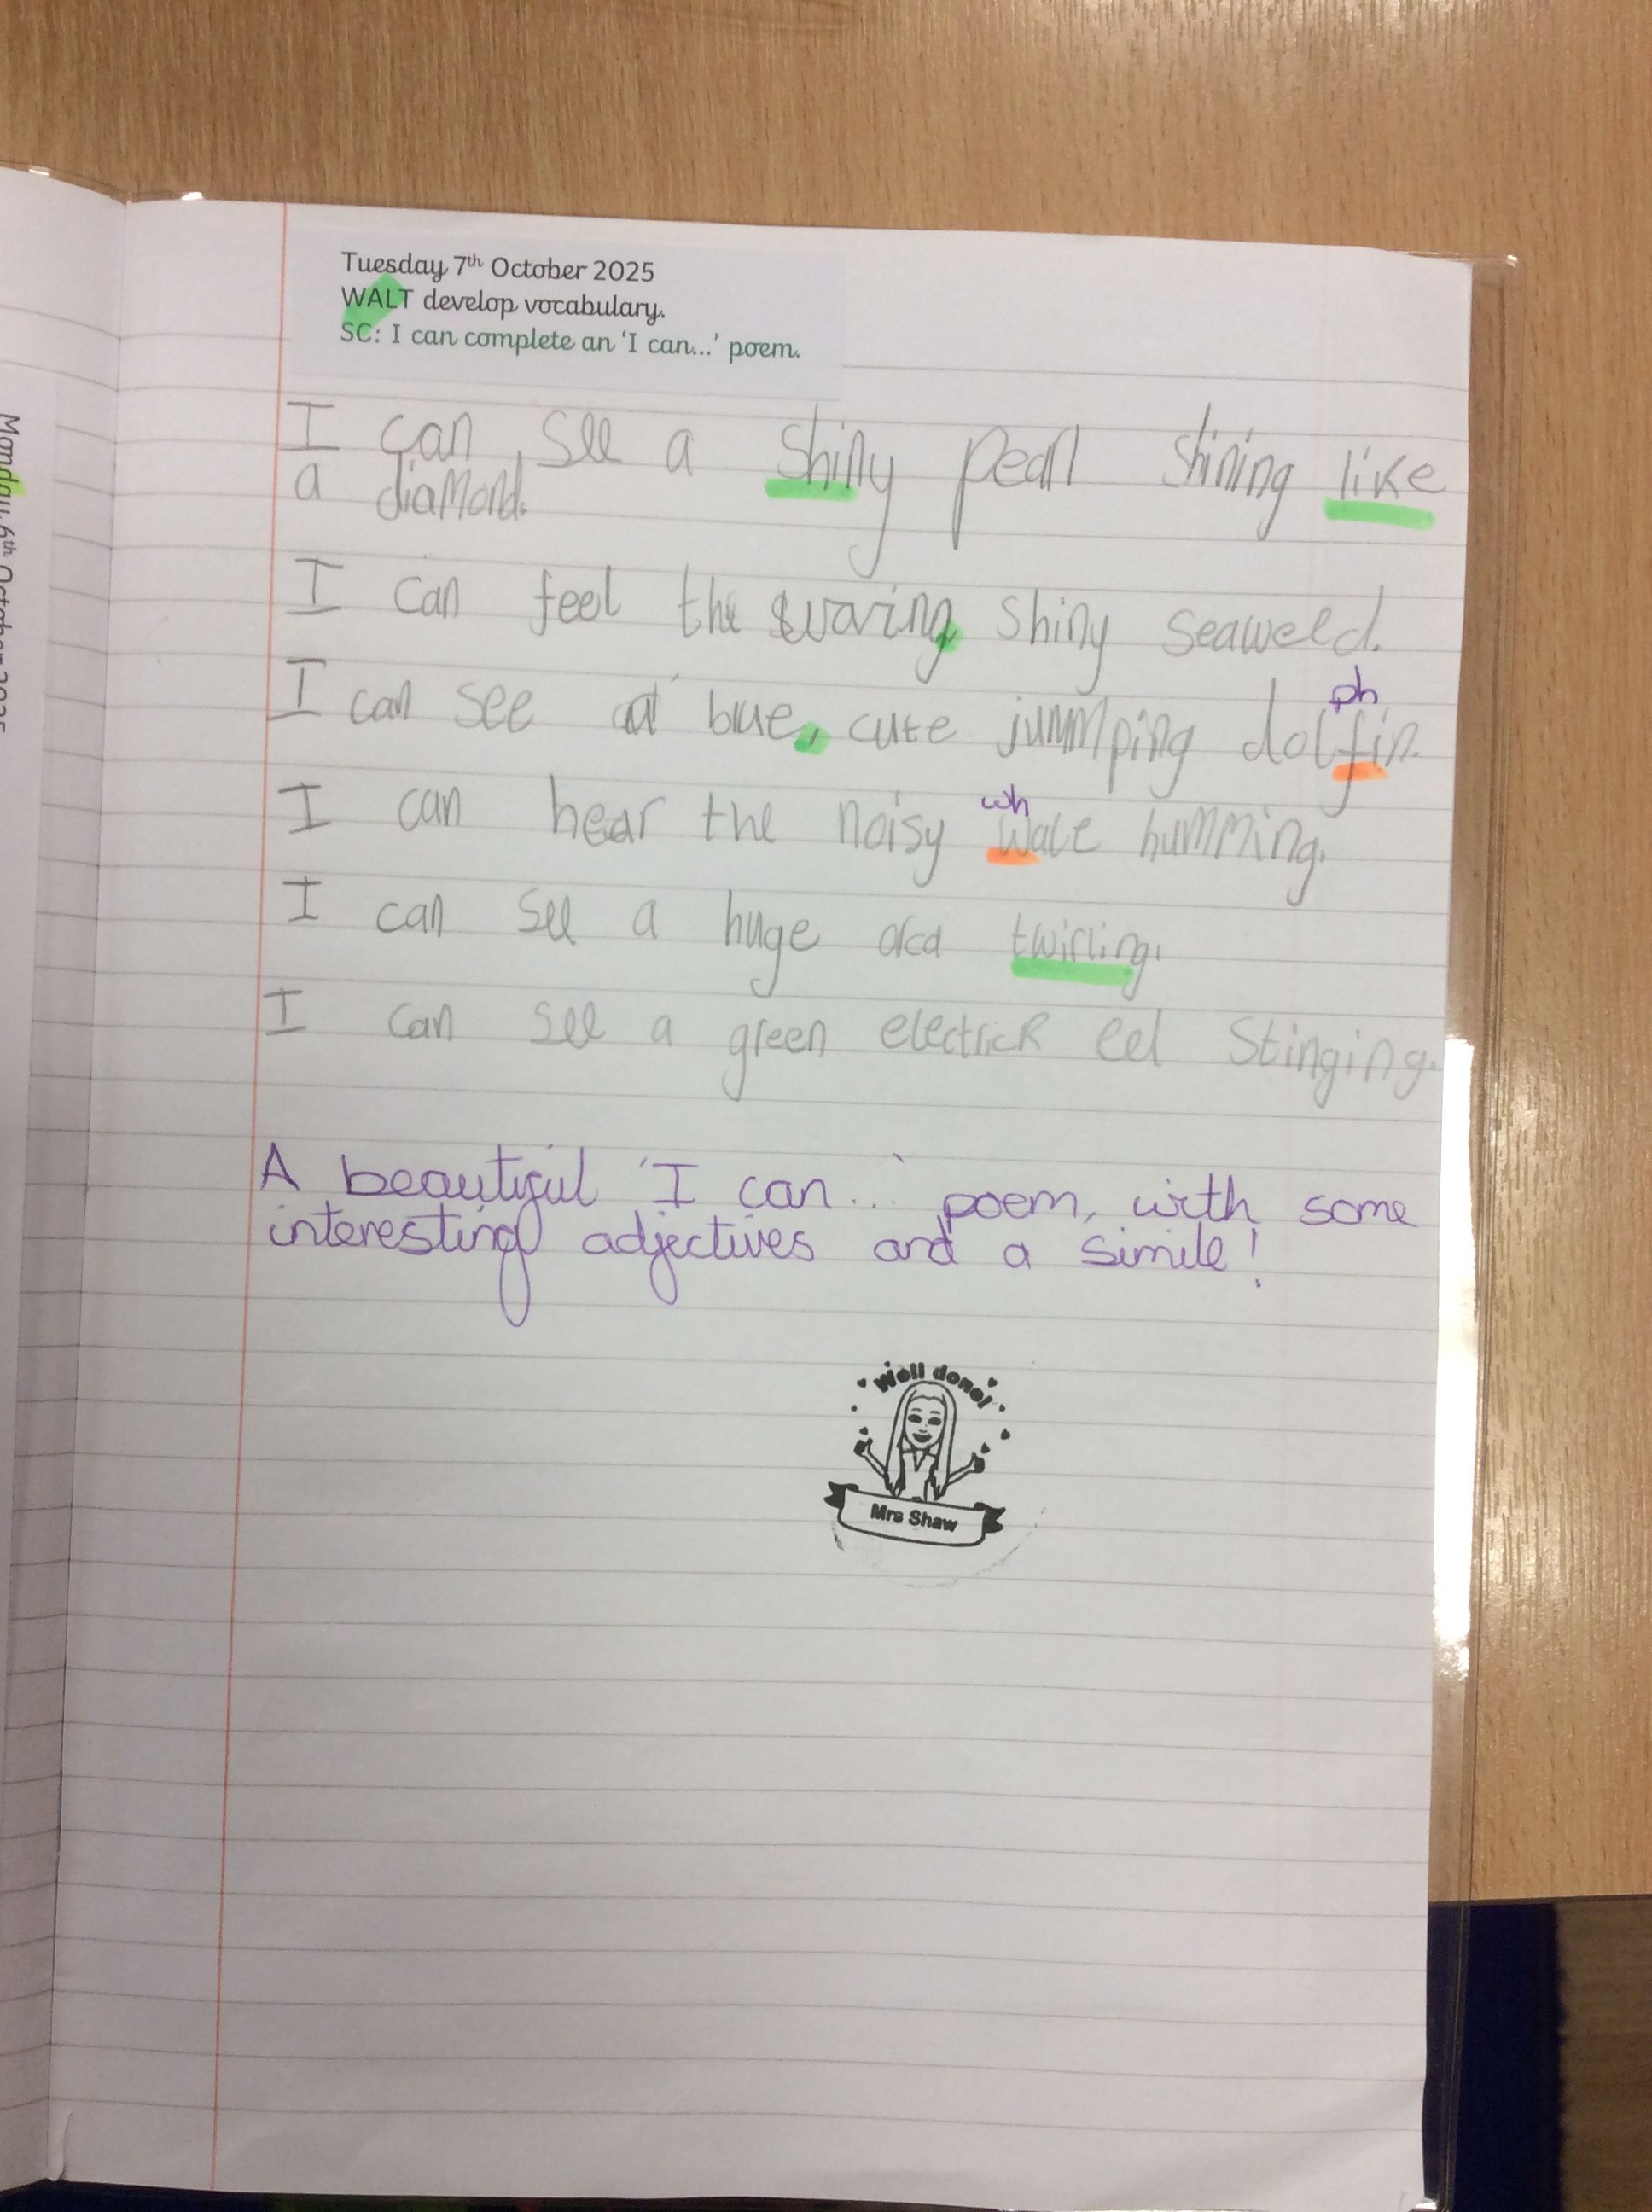 Tuesday 7th October 2025
WALT develop vocabulary.
SC: I can complete an 'I can...' poem.
I can see a shiny pearl shining like
a diamond.
I can feel the waving, shiny seaweed.
I can see a blue, cute jummping dolfin.
ph
I can hear the noisy wale humming.
wh
I can see a huge orca twirling.
I can see a green electrick eel stinging.
A beautiful 'I can...' poem, with some
interesting adjectives and a simile!
Well done!
Mrs Shaw
Monday 6th October 2025